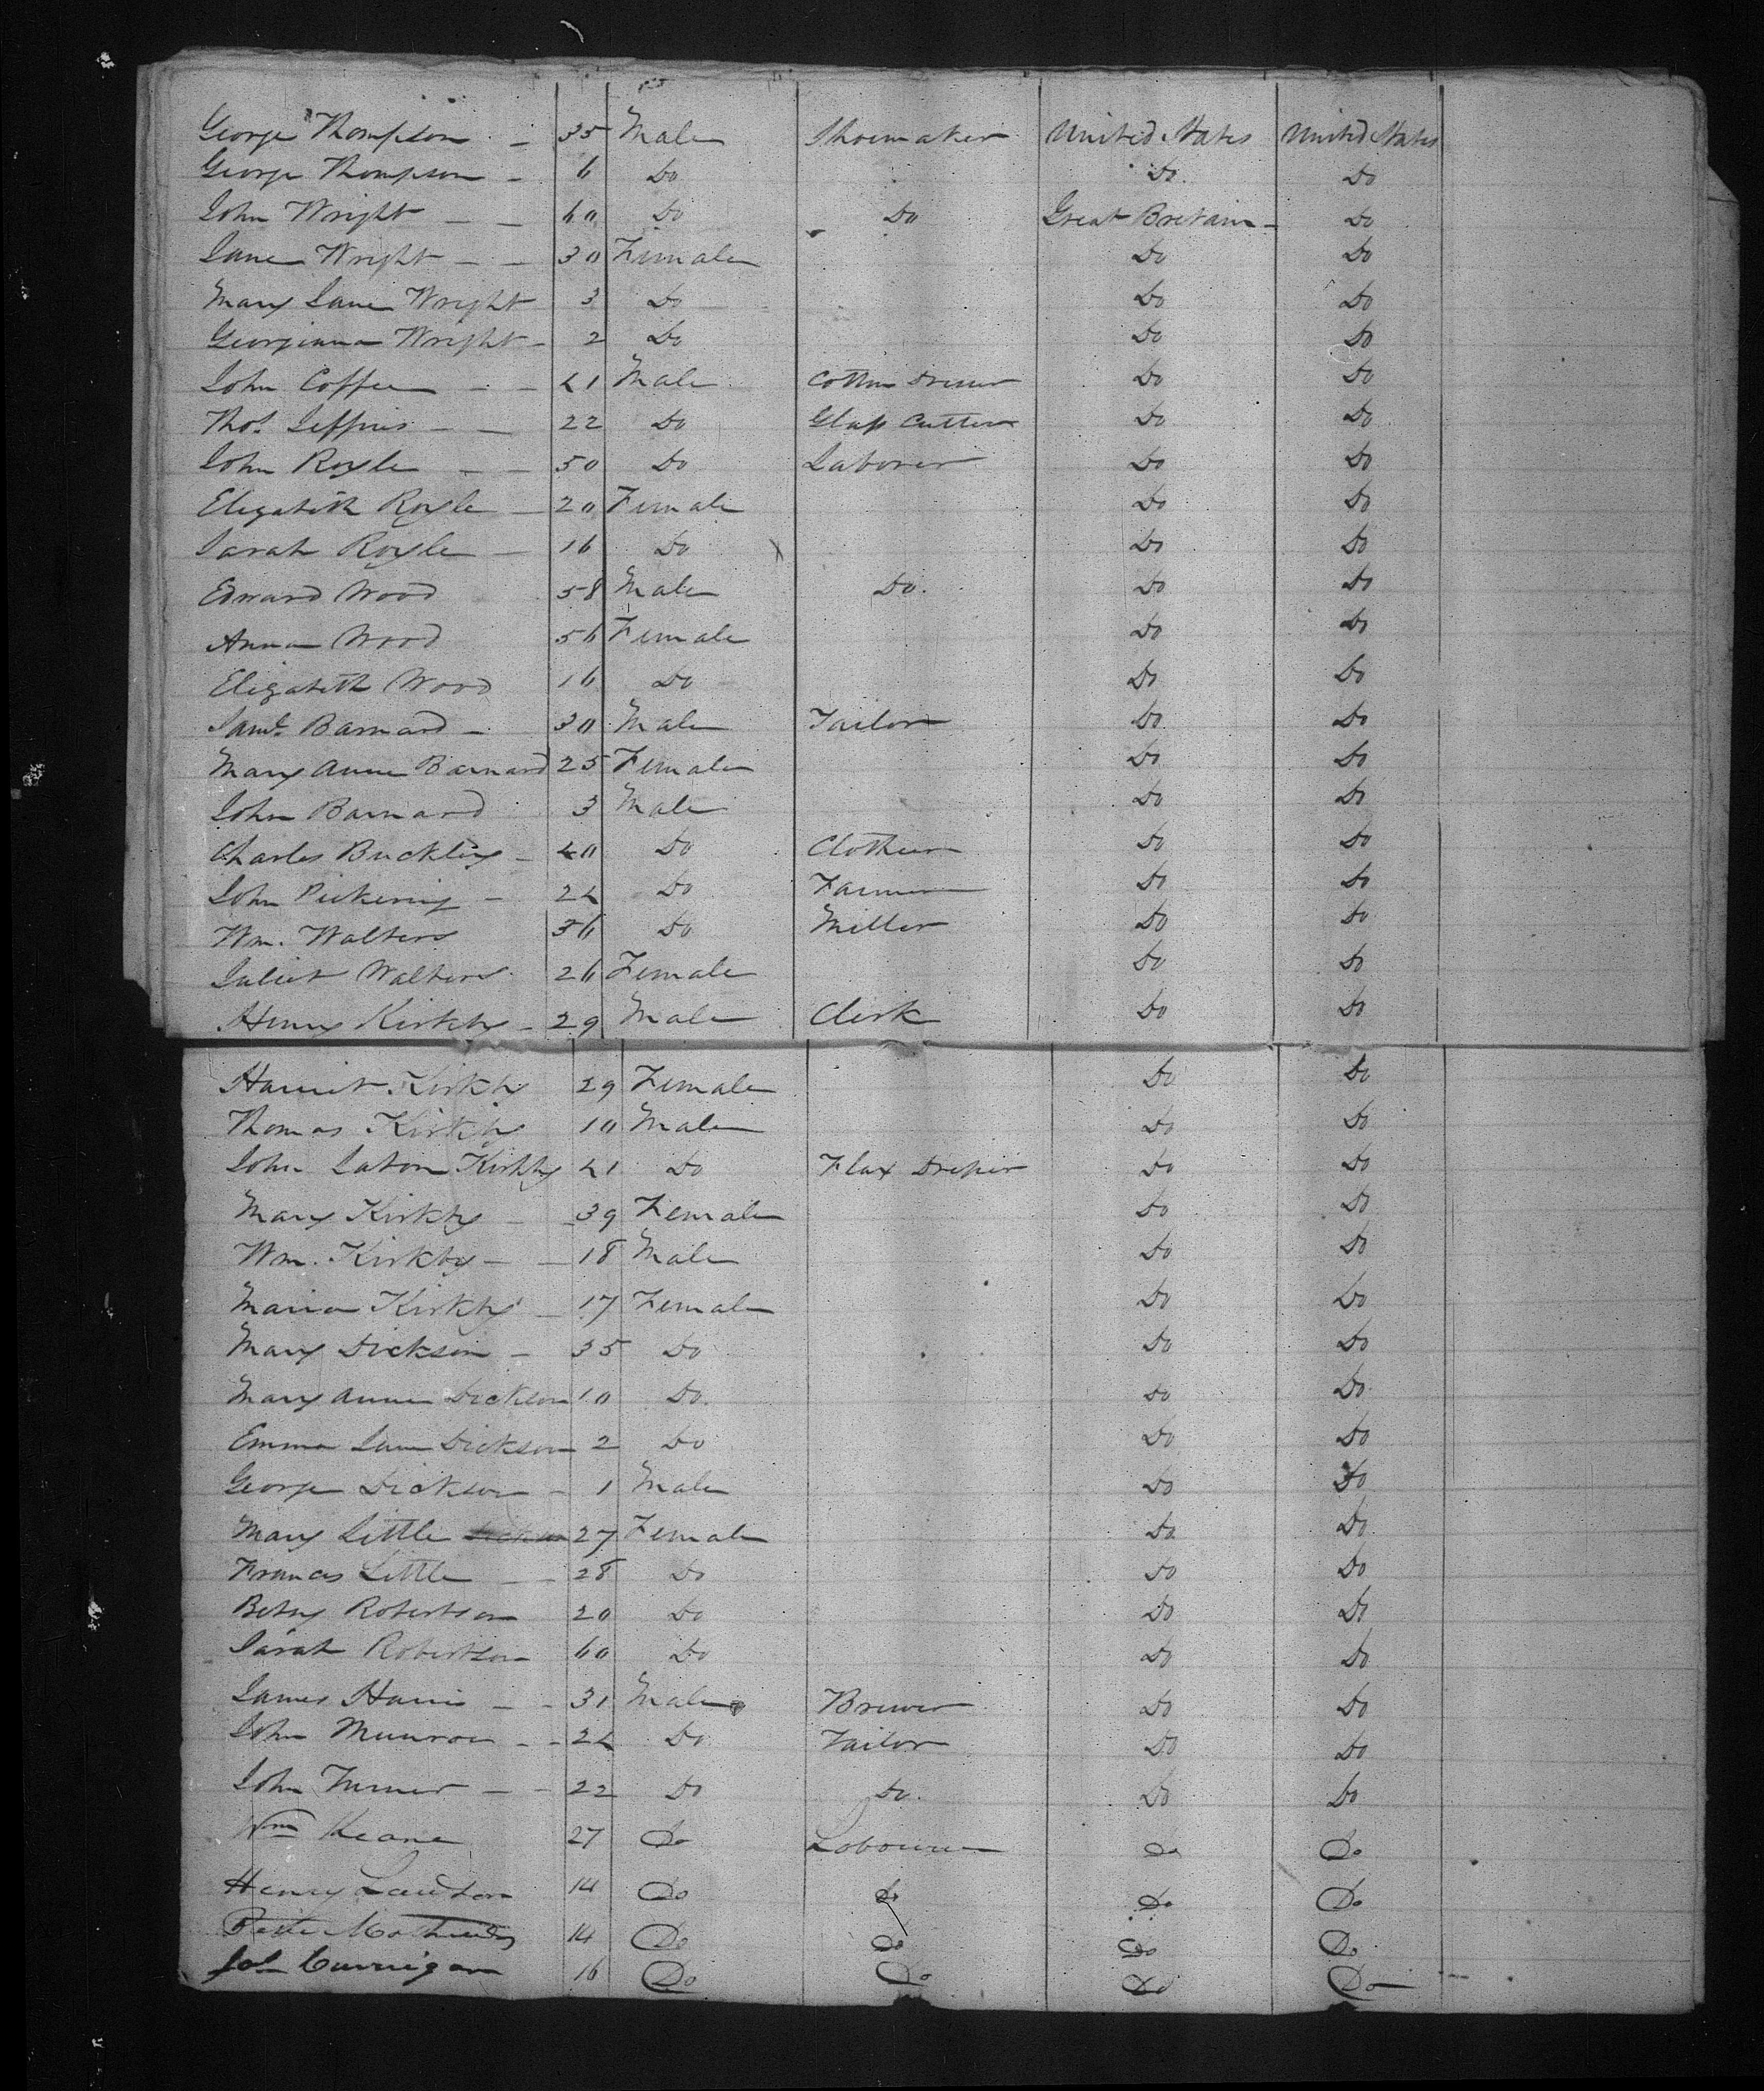 George Thompson - 35 Male Shoemaker United States United States
George Thompson - 6 Do Do Do
John Wright - - 60 Do Do Great Britain - Do
Jane Wright - - 30 Female Do Do
Mary Jane Wright 3 Do Do Do
Georgianna Wright - 2 Do Do Do
John Coffee - - 41 Male Cotton Dresser Do Do
Thos. Jeffries - - 22 Do Glass Cutter Do Do
John Royle - - 50 Do Laborer Do Do
Elizabeth Royle - 20 Female Do Do
Sarah Royle - 16 Do Do Do
Edward Wood 58 Male Do. Do Do
Anna Wood 56 Female Do Do
Elizabeth Wood 16 Do Do Do
Saml. Barnard - 30 Male Tailor Do Do
Mary Anne Barnard 25 Female Do Do
John Barnard 3 Male Do Do
Charles Buckley - 40 Do Clothier Do Do
John Pickering - 24 Do Farmer Do Do
Wm. Walters 36 Do Miller Do Do
Juliet Walters 26 Female Do Do
Henry Kirkby - 29 Male Clerk Do Do
Harriet Kirkby 29 Female Do Do
Thomas Kirkby 10 Male Do Do
John Kirkby 41 Do Flax Dresser Do Do
Mary Kirkby - 39 Female Do Do
Wm. Kirkby - - 18 Male Do Do
Maria Kirkby - 17 Female Do Do
Mary Dickson - 35 Do Do Do
Mary Anne Dickson 10 Do Do Do
Emma Jane Dickson 2 Do Do Do
George Dickson - 1 Male Do Do
Mary Little 27 Female Do Do
Frances Little - - 28 Do Do Do
Betsy Robertson 20 Do Do Do
Sarah Robertson 60 Do Do Do
James Harris - - 31 Male Brewer Do Do
John Munroe - - 24 Do Tailor Do Do
John Turner - - 22 Do Do. Do Do
Wm Keane 27 Do Labourer Do Do
Henry Lawton 14 Do Do Do Do
14 Do Do Do Do
Jon Currigan 16 Do Do Do Do